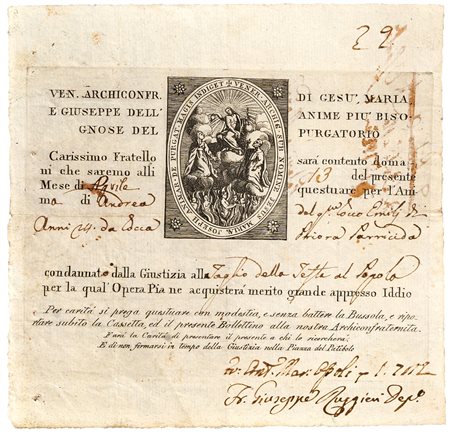 22
VEN. ARCHICONFR. DI GESU', MARIA
E GIUSEPPE DELL' ANIME PIU' BISO-
GNOSE DEL PURGATORIO
MARIA, JOSEPH, ANIMAR. DE PURGAT. MAGIS INDIGET. VENER. ARCHIC. SUB NOMINE JESUS
Carissimo Fratello sarà contento doma-
ni che saremo alli 13 del presente
Mese di Aprile questuare per l'Ani-
ma di Andrea del
Anni 24. da Parricida
condannato dalla Giustizia alla Taglio della Testa al Popolo
per la qual' Opera Pia ne acquisterà merito grande appresso Iddio
Per carità si prega questuare con modestia, e senza battere la Bussola, e ripor-
tare subito la Cassetta, ed il presente Bollettino alla nostra Archiconfraternita.
Farà la Carità di presentare il presente a chi lo ricercherà;
E di non firmarsi in tempo della Giustizia nella Piazza del Patibolo
Fr. Ant. Mar.
Fr. Giuseppe Ruggieri Dep.º